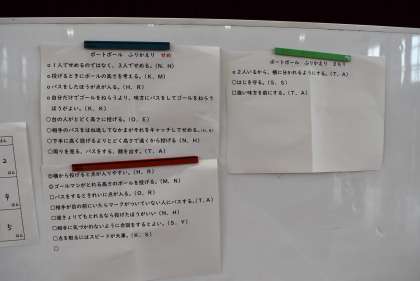 ポートボール　ふりかえり　せめ
○１人でせめるのではなく、３人でせめる。（N．N）
○投げるときにボールの高さを考える。（K．M）
○パスをしたほうが点が入る。（H．R）
○自分だけでゴールをねらうより、味方にパスをしてゴールをねらうほうがよい。（K．K）
○台の人がとどく高さに投げる。（O．E）
○相手のパスをはね返してなかまがそれをキャッチしてせめる。
○下手に高く投げるよりとどく高さで速くから投げる（N．H）
○周りを見る、パスをする、顔を出す。（T．A）
◎横から投げると点が入りやすい。（H．R）
◎ゴールマンがとれる高さのボールを投げる。（M．N）
□パスをするときれいに入る。（O．R）
□相手が目の前にいたらマークがついていない人にパスする。（T．A）
□投げたほうがいい（N．H）
□相手に気づかれないように合図をするとよい。（S．Y）
□点を取るにはスピードが大事。（K．S）
□
ポートボール　ふりかえり　まもり
○２人いるから、横に分かれるようにする。（T．A）
□はじを守る。（S．S）
□強い味方を前にする。（T．A）
2
4
5